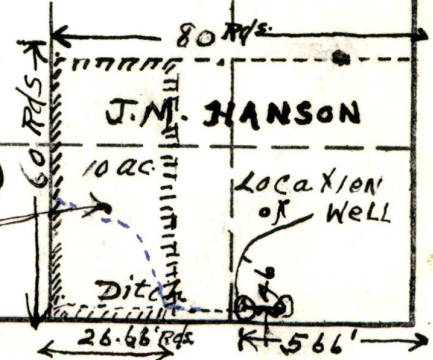 80 Rds.
60 Rds
J.M. HANSON
10 ac.
Location
of Well
Ditch
46
26.66' Rds
566'